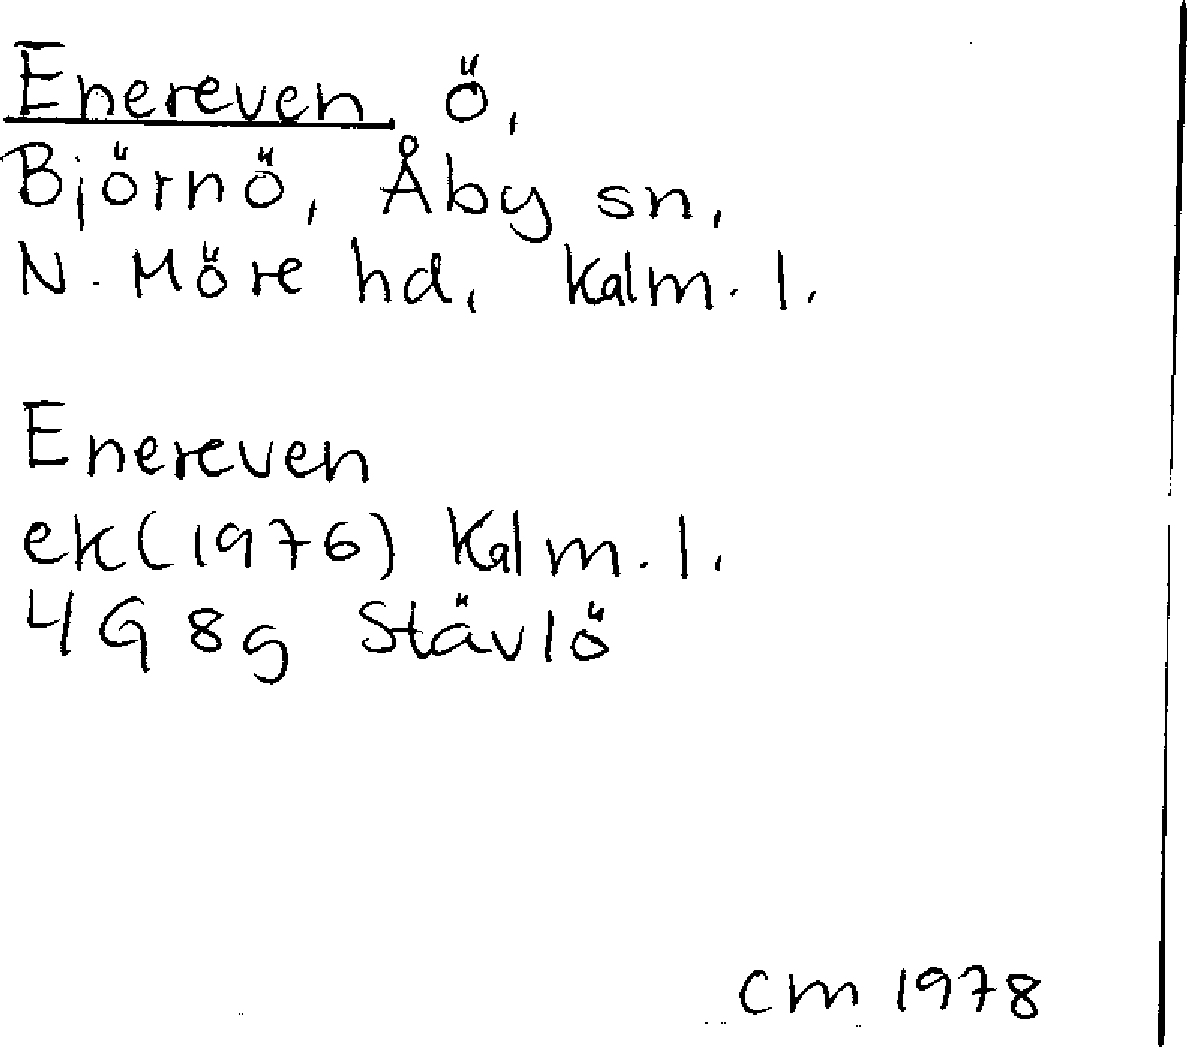 Enereven ö,
Björnö, Åby sn,
N. Möre hd, Kalm. l.
Enereven
ek(1976) Kalm. l.
4G 8g Stävlö
cm 1978